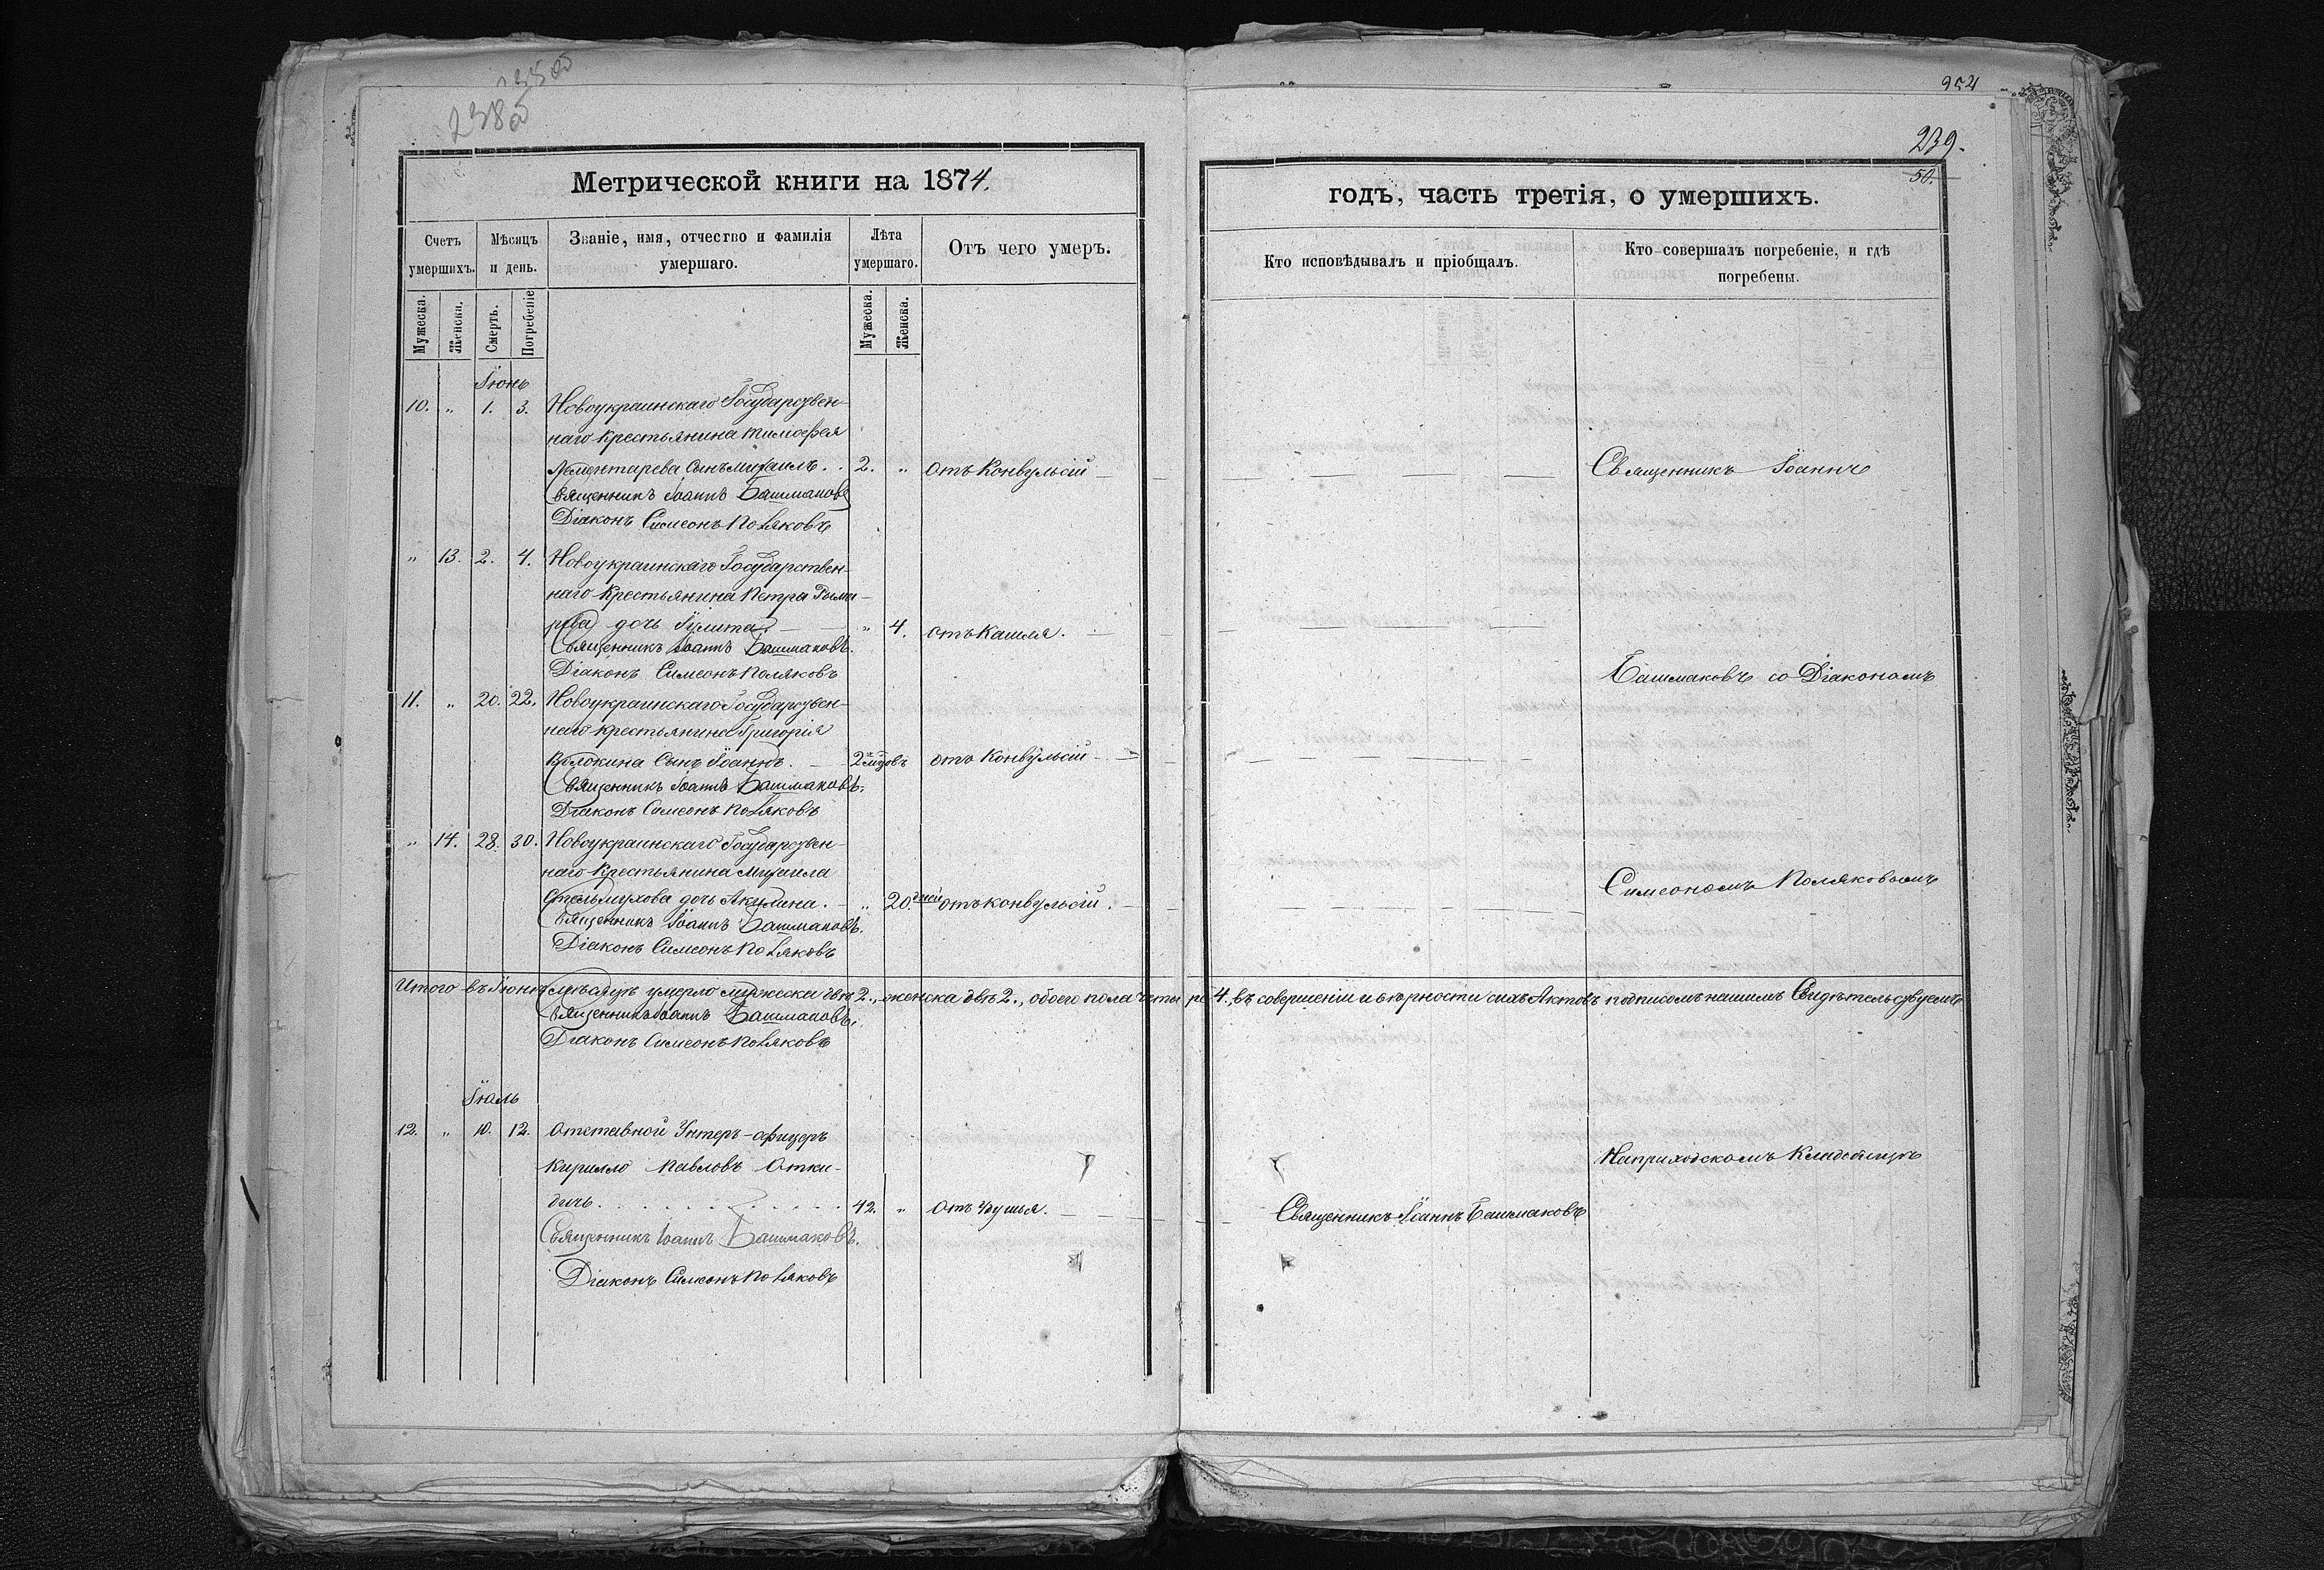 2385
954
239.
50.
Метрической книги на 1874.
годъ, часть третія, о умершихъ.
Счетъ умершихъ.
Мѣсяцъ и день.
Званіе, имя, отчество и фамилія умершаго.
Лѣта умершаго.
Отъ чего умеръ.
Кто исповѣдывалъ и пріобщалъ.
Кто совершалъ погребеніе, и гдѣ погребены.
Мужеска.
Женска.
Смерть.
Погребеніе
Мужеска.
Женска.
Іюнь
10. " 1. 3. Новоукраинскаго Государствен-
наго крестьянина Тимофея
сынъ Михаилъ . . 2. " отъ Конвульсій
Священникъ Іоаннъ
Священникъ Іоаннъ Башмаковъ
Діаконъ Симеонъ Поляковъ
" 13. 2. 4. Новоукраинскаго Государствен-
наго крестьянина Петра Рыма-
рева дочь Іулита " 4. отъ Кашля.
Священникъ Іоаннъ Башмаковъ.
Діаконъ Симеонъ Поляковъ
Башмаковъ со Діакономъ
11. " 20. 22. Новоукраинскаго Государствен-
наго крестьянина Григорія
сынъ Іоаннъ. 2 отъ Конвульсій
Священникъ Іоаннъ Башмаковъ.
Діаконъ Симеонъ Поляковъ
" 14. 28. 30. Новоукраинскаго Государствен-
наго крестьянина Михаила
Стельмухова дочь Акулина. " 20. дней отъ конвульсій.
Симеономъ Поляковымъ
Священникъ Іоаннъ Башмаковъ.
Діаконъ Симеонъ Поляковъ
Итого въ Іюнѣ мѣсяцѣ умерло мужеска двѣ 2., женска двѣ 2., обоего пола четыре 4., въ совершеніи и вѣрности сихъ Актовъ подписомъ нашимъ Свидѣтельствуемъ
Священникъ Іоаннъ Башмаковъ.
Діаконъ Симеонъ Поляковъ
Іюль
12. " 10. 12. Отставной Унтеръ-офицеръ
Кирилло Павловъ Отки-
дычъ 42. " Отъ Удушья.
Священникъ Іоаннъ Башмаковъ
На приходскомъ Кладбищѣ
Священникъ Іоаннъ Башмаковъ.
Діаконъ Симеонъ Поляковъ